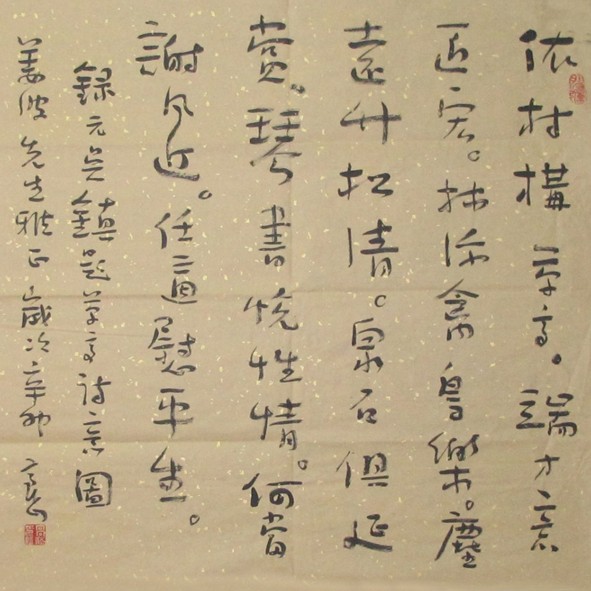 依村構草亭。端方意
匠宏。林深禽鳥樂。塵
遠竹松清。泉石俱延
賞。琴書悅性情。何當
謝凡近。任適慰平生。
錄元吳鎮題草亭詩意圖
姜波先生雅正歲次辛卯